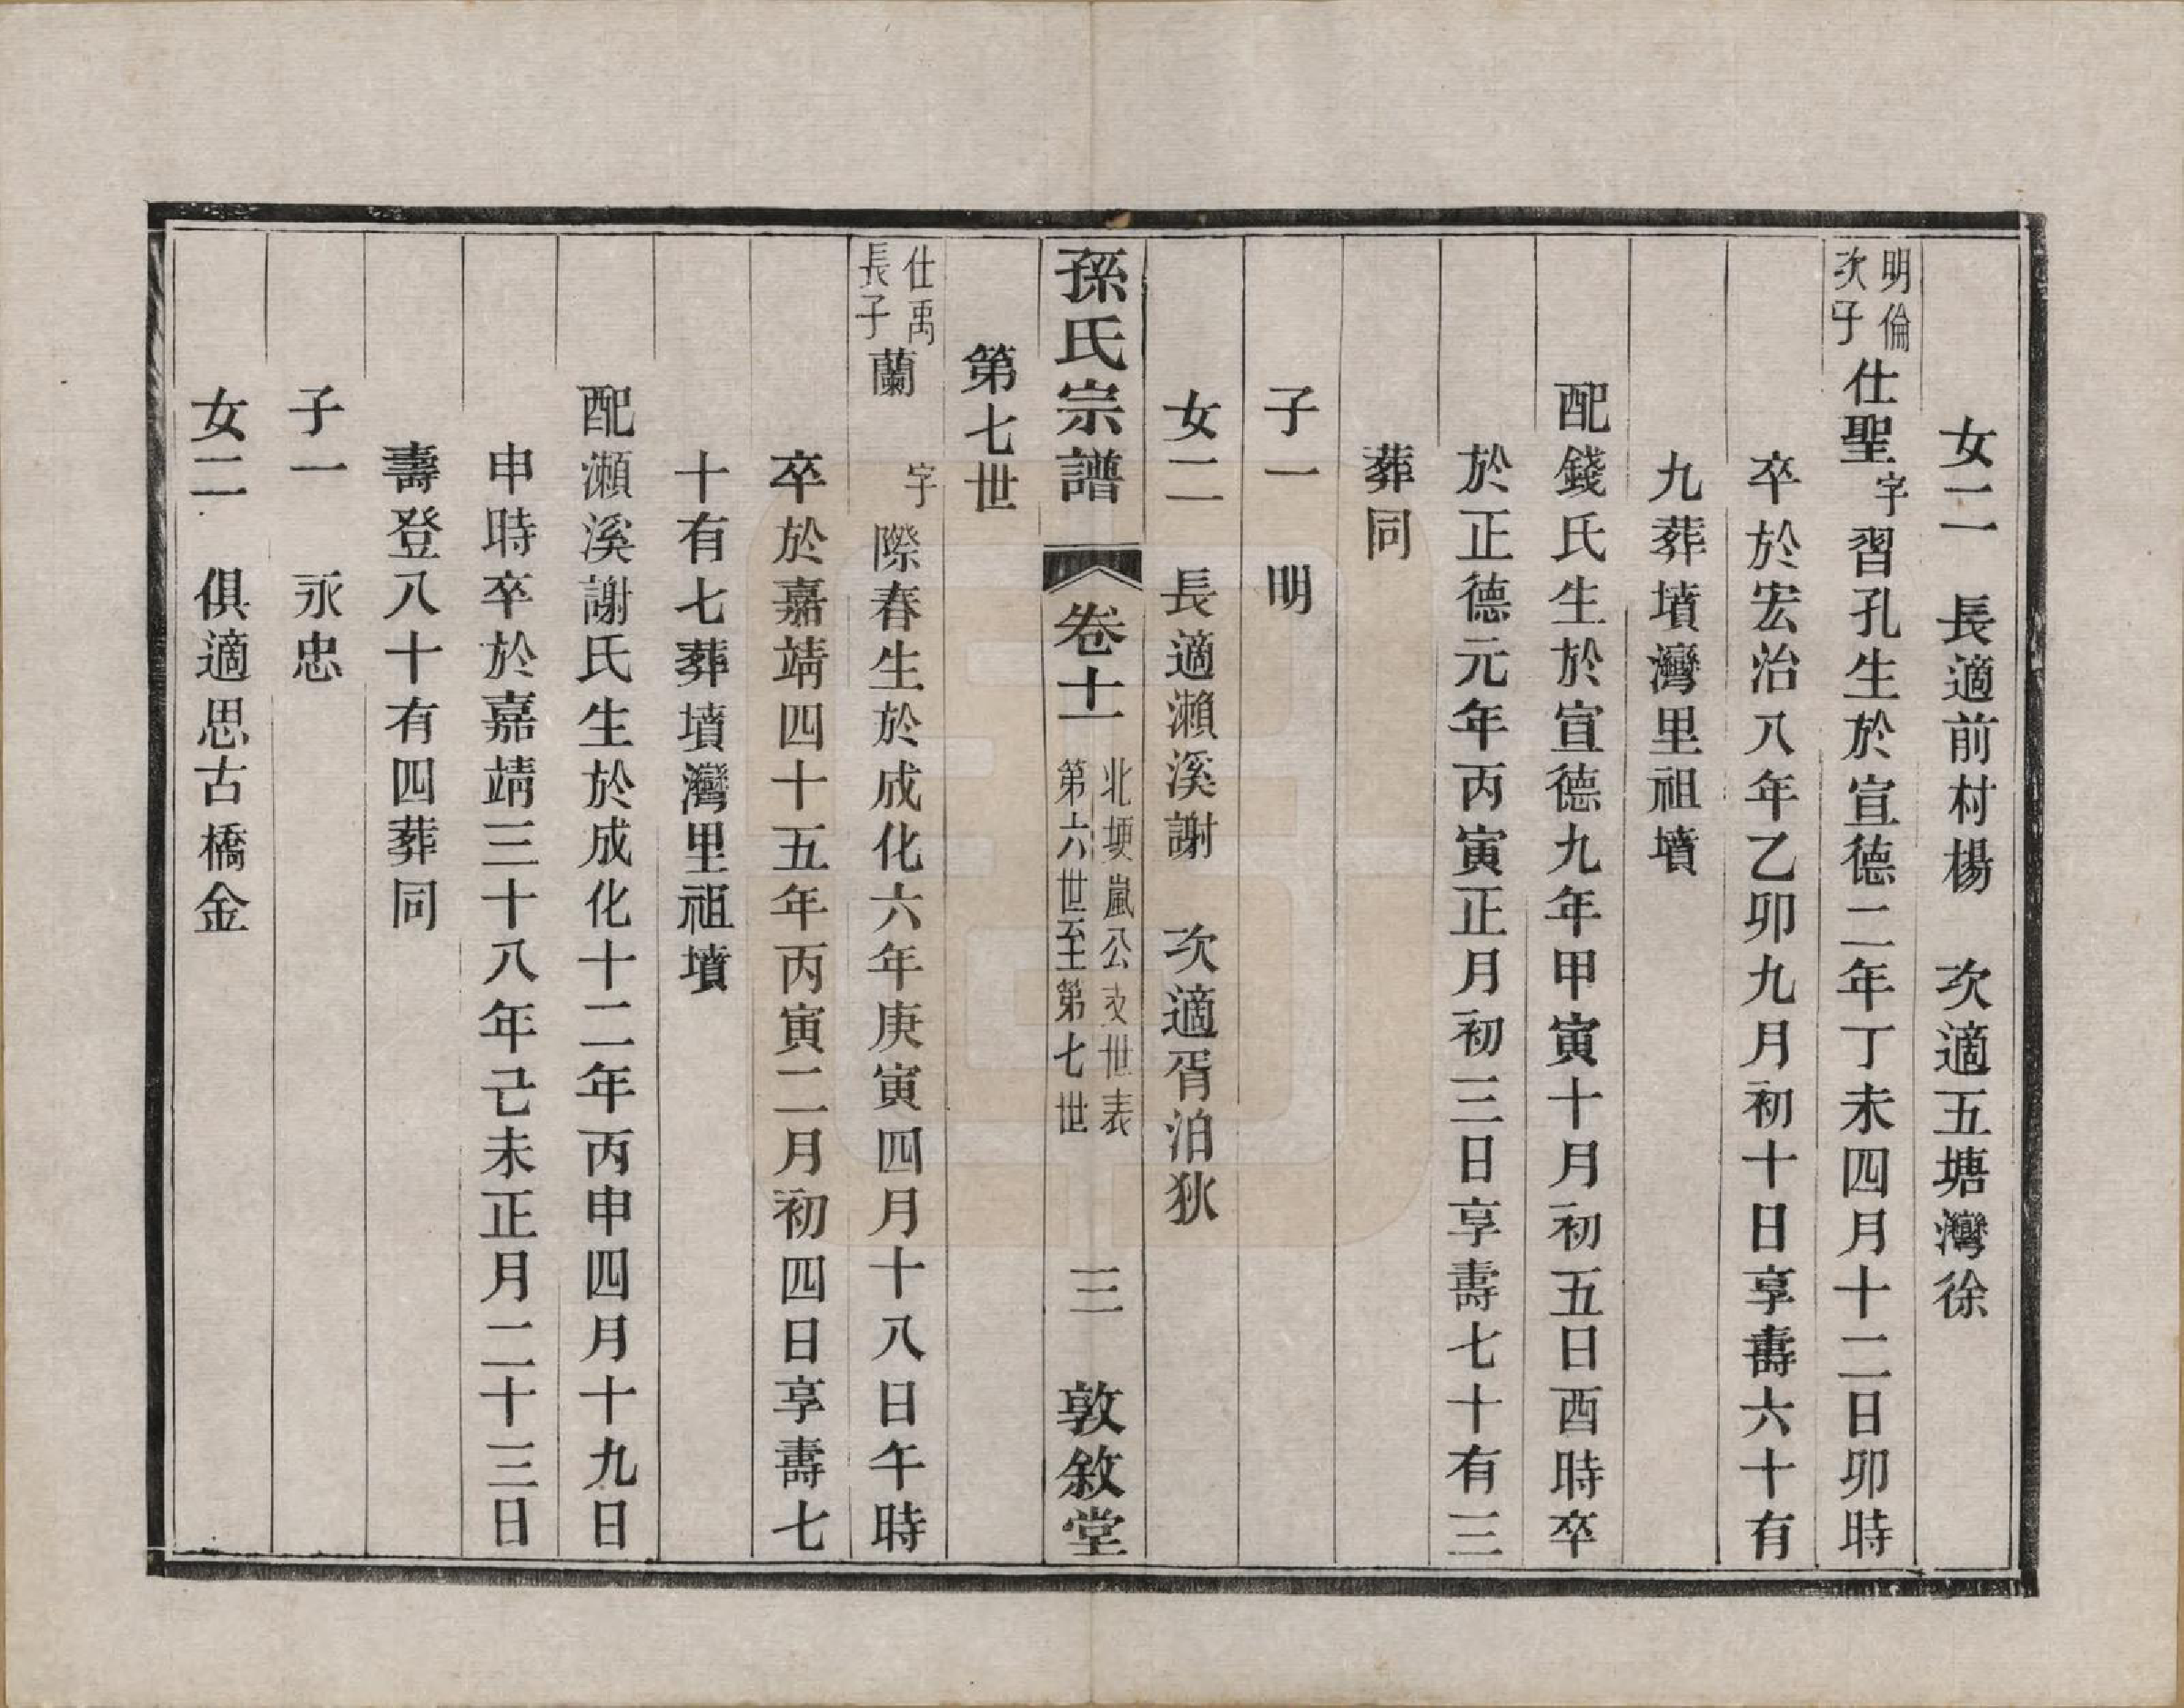 女二　長適前村楊　次適五塘灣徐
明倫次子仕聖字習孔生於宣德二年丁未四月十二日卯時
卒於宏治八年乙卯九月初十日享壽六十有
九葬墳灣里祖墳
配錢氏生於宣德九年甲寅十月初五日酉時卒
於正德元年丙寅正月初三日享壽七十有三
葬同
子一　明
女二　長適瀨溪謝　次適胥泊狄
孫氏宗譜　卷十一　北埂嵐公支世表第六世至第七世　三　敦敘堂
第七世
仕禹長子蘭　字際春生於成化六年庚寅四月十八日午時
卒於嘉靖四十五年丙寅二月初四日享壽七
十有七葬墳灣里祖墳
配瀨溪謝氏生於成化十二年丙申四月十九日
申時卒於嘉靖三十八年己未正月二十三日
壽登八十有四葬同
子一　永忠
女二　俱適思古橋金